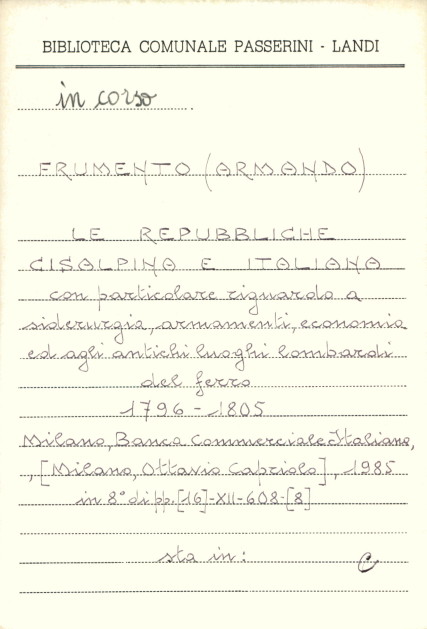 BIBLIOTECA COMUNALE PASSERINI - LANDI
in corso
FRUMENTO (ARMANDO)
LE REPUBBLICHE
CISALPINA E ITALIANA
con particolare riguardo a
siderurgia, armamenti, economia
ed agli antichi luoghi lombardi
del ferro
1796 - 1805
Milano, Banca Commerciale Italiana,
, [Milano, Ottavio Capriolo], 1985
in 8° di pp. [16]-XII-608-[8]
sta in: C